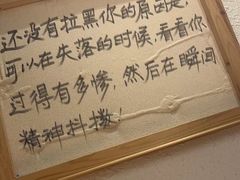 还没有拉黑你的原因是,
可以在失落的时候,看看你
过得有多惨,然后在瞬间
精神抖擞!